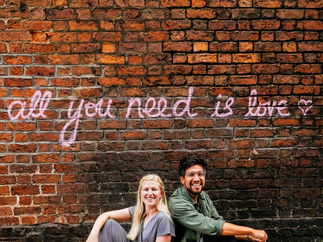 all you need is love ♡